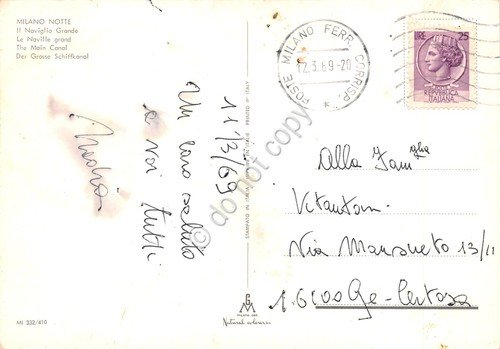 MILANO NOTTE
Il Naviglio Grande
Le Naville grand
The Main Canal
Der Grosse Schiffkanal
11/3/69
Un caro saluto
a voi tutti
POSTE MILANO FERR. CORRISP.
12.3.69-20
LIRE 25
REPUBBLICA
ITALIANA
Alla Fam.glia
Via Mansueto 13/11
16100 Ge-Certosa
STAMPATO IN ITALIA
PRINTED IN ITALY
GM
Natural colours
MI 332/410
do not copy